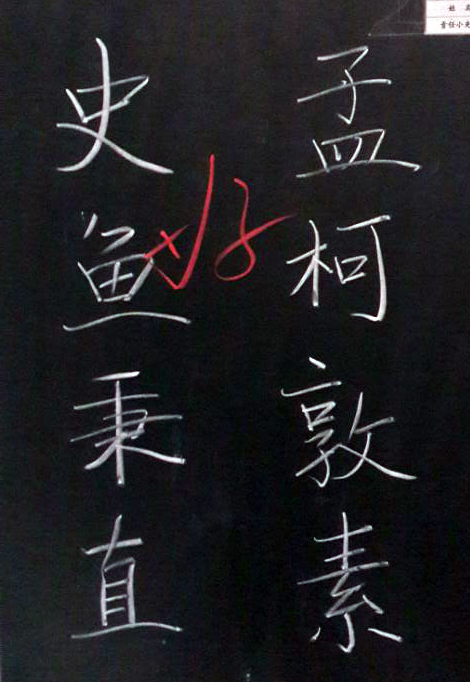 孟柯敦素
史鱼秉直
好
责任